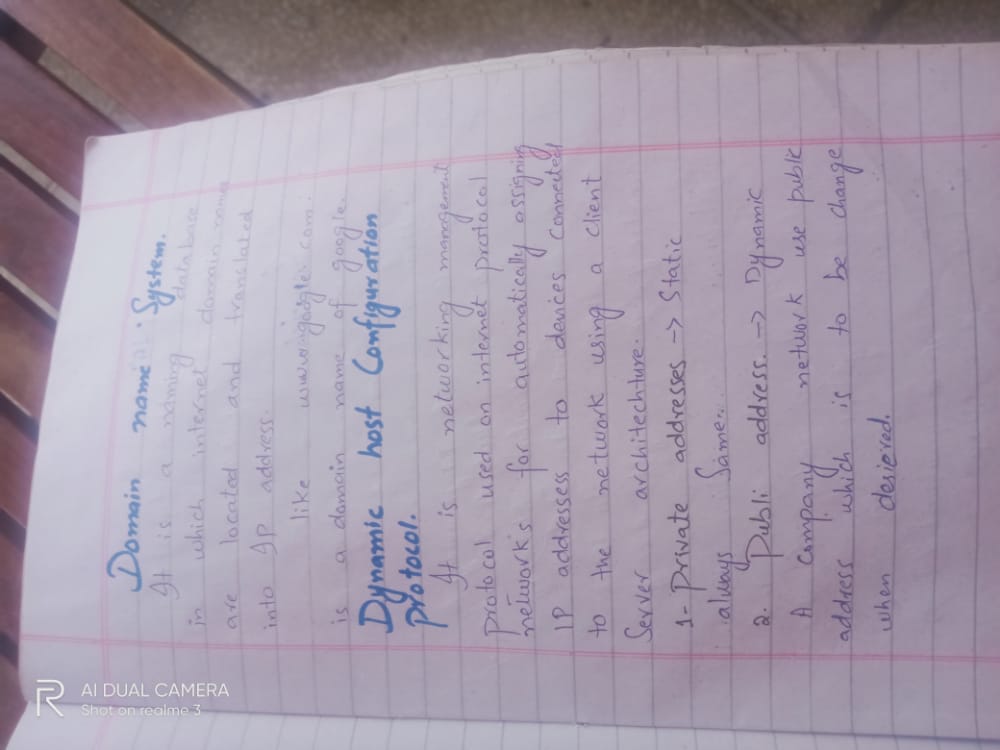 Domain name System.
It is a naming database
in which internet domain name
are located and translated
into IP address.
like www.google.com.
is a domain name of google.
Dynamic host Configuration
Protocol.
It is networking management
protocol used on internet protocal
network's for automatically assigning
IP addressess to devices connected
to the network using a client
Server architechture.
1- Private addresses -> Static
always Same...
2. Publi address. -> Dynamic
A company network use publc
address which is to be change
when desiered.
R AI DUAL CAMERA
Shot on realme 3